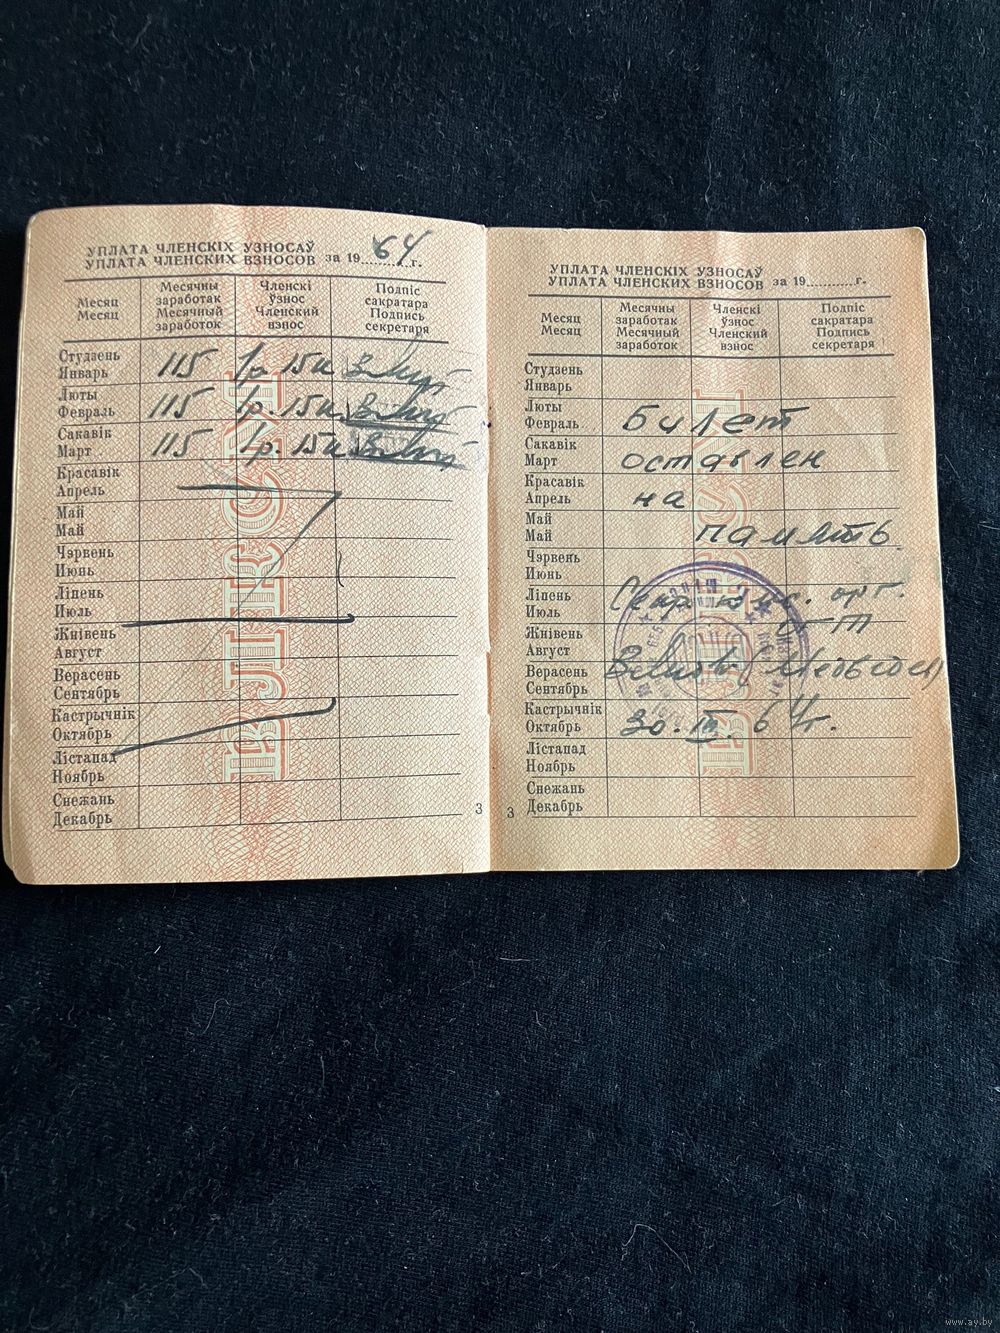 УПЛАТА ЧЛЕНСКІХ УЗНОСАЎ
УПЛАТА ЧЛЕНСКИХ ВЗНОСОВ за 1964 г.
Месяц
Месяц
Месячны
заработак
Месячный
заработок
Членскі
ўзнос
Членский
взнос
Подпіс
сакратара
Подпись
секретаря
Студзень
Январь 115 1р 15к
Люты
Февраль 115 1р. 15к
Сакавік
Март 115 1р. 15к
Красавік
Апрель
Май
Май
Чэрвень
Июнь
Ліпень
Июль
Жнівень
Август
Верасень
Сентябрь
Кастрычнік
Октябрь
Лістапад
Ноябрь
Снежань
Декабрь
ВЛКСМ
3
УПЛАТА ЧЛЕНСКІХ УЗНОСАЎ
УПЛАТА ЧЛЕНСКИХ ВЗНОСОВ за 19 г.
Месяц
Месяц
Месячны
заработак
Месячный
заработок
Членскі
ўзнос
Членский
взнос
Подпіс
сакратара
Подпись
секретаря
Студзень
Январь
Люты
Февраль
Сакавік
Март
Красавік
Апрель
Май
Май
Чэрвень
Июнь
Ліпень
Июль
Жнівень
Август
Верасень
Сентябрь
Кастрычнік
Октябрь
Лістапад
Ноябрь
Снежань
Декабрь
ВЛКСМ
Билет
оставлен
на
память
Секр. орг.
30.III.64г.
3
www.ay.by